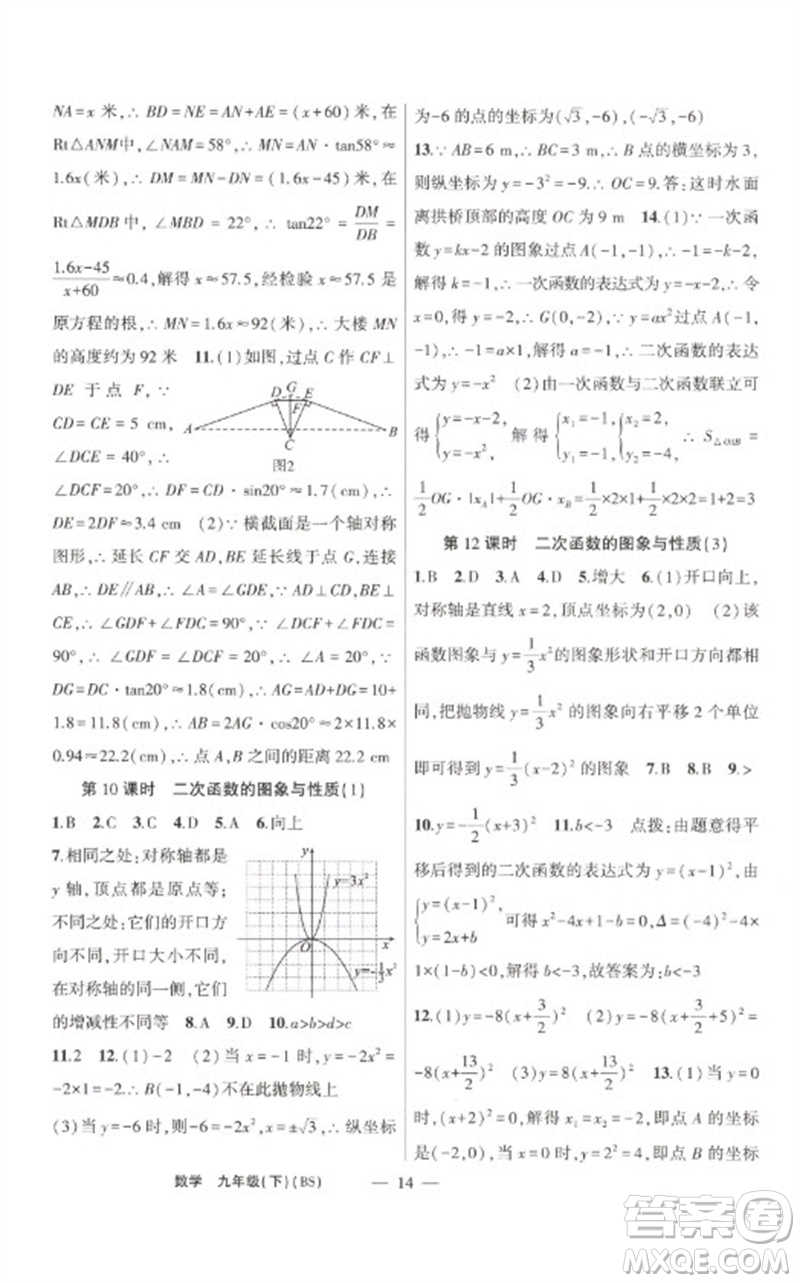 NA=x 米,∴ BD=NE=AN+AE=(x+60)米,在
Rt△ANM中,∠NAM=58°,∴ MN=AN·tan58°≈
1.6x(米),∴ DM=MN-DN=(1.6x-45)米,在
Rt△MDB 中,∠MBD = 22°,∴ tan22° = DM/DB ≈
(1.6x-45)/(x+60)≈0.4,解得 x≈57.5,经检验 x≈57.5 是
原方程的根,∴ MN=1.6x≈92(米),∴ 大楼 MN
的高度约为 92 米 11.(1)如图,过点 C 作 CF⊥
DE 于点 F,∵
CD = CE = 5 cm,
∠DCE = 40°,∴
D G E
F
A B
C
图2
∠DCF=20°,∴ DF=CD·sin20°≈1.7(cm),∴
DE=2DF≈3.4 cm (2)∵ 横截面是一个轴对称
图形,∴ 延长 CF 交 AD、BE 延长线于点 G,连接
AB,∴ DE∥AB,∴ ∠A=∠GDE,∵ AD⊥CD,BE⊥
CE,∴ ∠GDF+∠FDC=90°,∵ ∠DCF+∠FDC=
90°,∴ ∠GDF = ∠DCF = 20°,∴ ∠A = 20°,∵
DG=DC·tan20°≈1.8(cm),∴ AG=AD+DG=10+
1.8=11.8(cm),∴ AB=2AG·cos20°≈2×11.8×
0.94≈22.2(cm),∴ 点 A,B 之间的距离 22.2 cm
第 10 课时 二次函数的图象与性质(1)
1.B 2.C 3.C 4.D 5.A 6.向上
7.相同之处:对称轴都是
y 轴,顶点都是原点等;
不同之处:它们的开口方
向不同,开口大小不同,
在对称轴的同一侧,它们
的增减性不同等 8.A 9.D 10.a>b>d>c
y
y=3x²
O
x
y=-1/3x²
11.2 12.(1)-2 (2)当 x=-1 时,y=-2x²=
-2×1=-2,∴ B(-1,-4)不在此抛物线上
(3)当 y=-6 时,则-6=-2x²,x=±√3,∴ 纵坐标
为-6 的点的坐标为(√3,-6),(-√3,-6)
13.∵ AB=6 m,∴ BC=3 m,∴ B 点的横坐标为 3,
则纵坐标为 y=-3²=-9.∴ OC=9.答:这时水面
离拱桥顶部的高度 OC 为 9 m 14.(1)∵ 一次函
数 y=kx-2 的图象过点 A(-1,-1),∴ -1=-k-2,
解得 k=-1,∴ 一次函数的表达式为 y=-x-2,∴ 令
x=0,得 y=-2,∴ G(0,-2),∵ y=ax²过点 A(-1,
-1),∴ -1=a×1,解得 a=-1,∴ 二次函数的表达
式为 y=-x² (2)由一次函数与二次函数联立可
得{y=-x-2, y=-x², 解得{x₁=-1, y₁=-1, {x₂=2, y₂=-4, ∴ S△OAB=
1/2OG·|x_A|+1/2OG·x_B=1/2×2×1+1/2×2×2=1+2=3
第 12 课时 二次函数的图象与性质(3)
1.B 2.D 3.A 4.D 5.增大 6.(1)开口向上,
对称轴是直线 x=2,顶点坐标为(2,0) (2)该
函数图象与 y=1/3x²的图象形状和开口方向都相
同,把抛物线 y=1/3x² 的图象向右平移 2 个单位
即可得到 y=1/3(x-2)²的图象 7.B 8.B 9.>
10.y=-1/2(x+3)² 11.b<-3 点拨:由题意得平
移后得到的二次函数的表达式为 y=(x-1)²,由
{y=(x-1)², y=2x+b 可得 x²-4x+1-b=0,Δ=(-4)²-4×
1×(1-b)<0,解得 b<-3,故答案为:b<-3
12.(1)y=-8(x+3/2)² (2)y=-8(x+3/2+5)²=
-8(x+13/2)² (3)y=8(x+13/2)² 13.(1)当 y=0
时,(x+2)²=0,解得 x₁=x₂=-2,即点 A 的坐标为
(-2,0),当 x=0 时,y=2²=4,即点 B 的坐标
数学 九年级(下)(BS)
— 14 —
答案卷
MXQE.COM